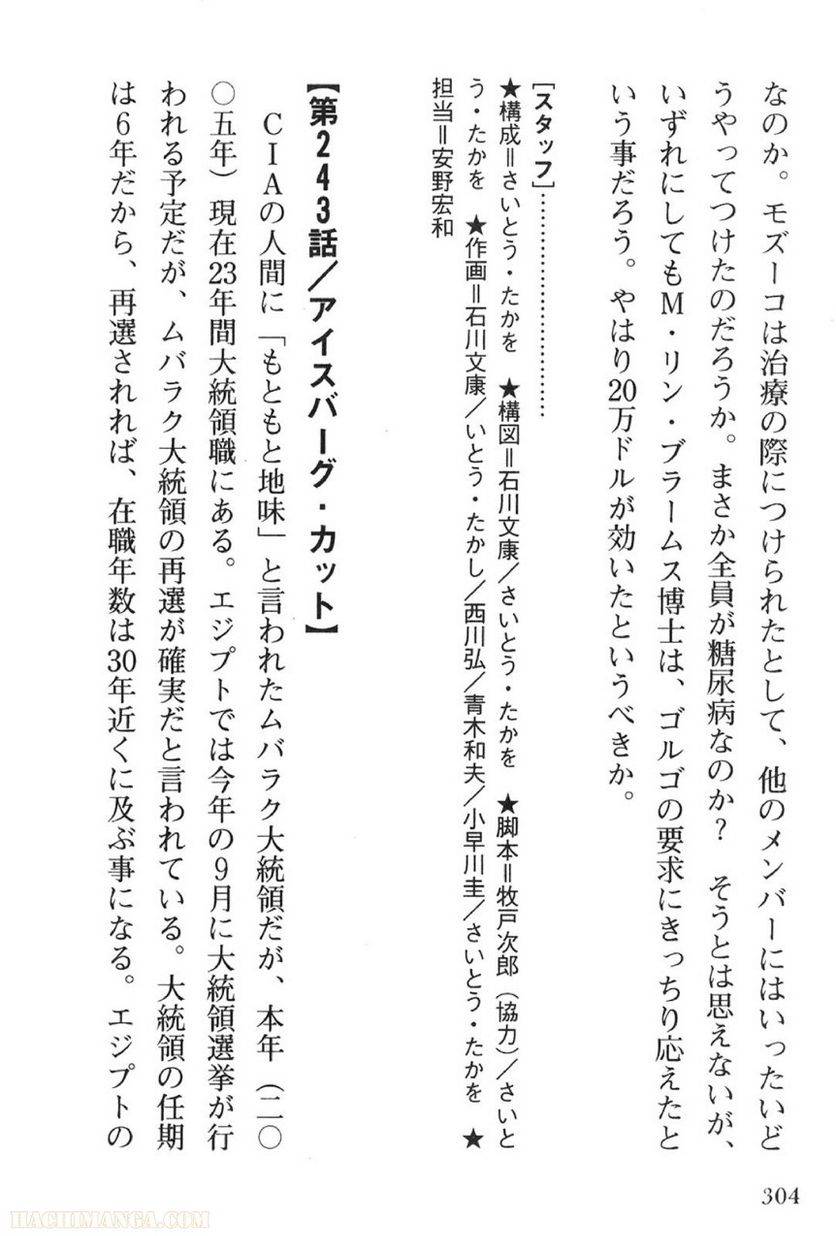 なのか。モズーコは治療の際につけられたとして、他のメンバーにはいったいど
うやってつけたのだろうか。まさか全員が糖尿病なのか？　そうとは思えないが、
いずれにしてもM・リン・ブラームス博士は、ゴルゴの要求にきっちり応えたと
いう事だろう。やはり20万ドルが効いたというべきか。
[スタッフ]…………………………
★構成＝さいとう・たかを　★構図＝石川文康／さいとう・たかを　★脚本＝牧戸次郎（協力）／さいと
う・たかを　★作画＝石川文康／いとう・たかし／西川弘／青木和夫／小早川圭／さいとう・たかを　★
担当＝安野宏和
【第243話／アイスバーグ・カット】
　CIAの人間に「もともと地味」と言われたムバラク大統領だが、本年（二〇
〇五年）現在23年間大統領職にある。エジプトでは今年の9月に大統領選挙が行
われる予定だが、ムバラク大統領の再選が確実だと言われている。大統領の任期
は6年だから、再選されれば、在職年数は30年近くに及ぶ事になる。エジプトの
304
HACHIMANGA.COM